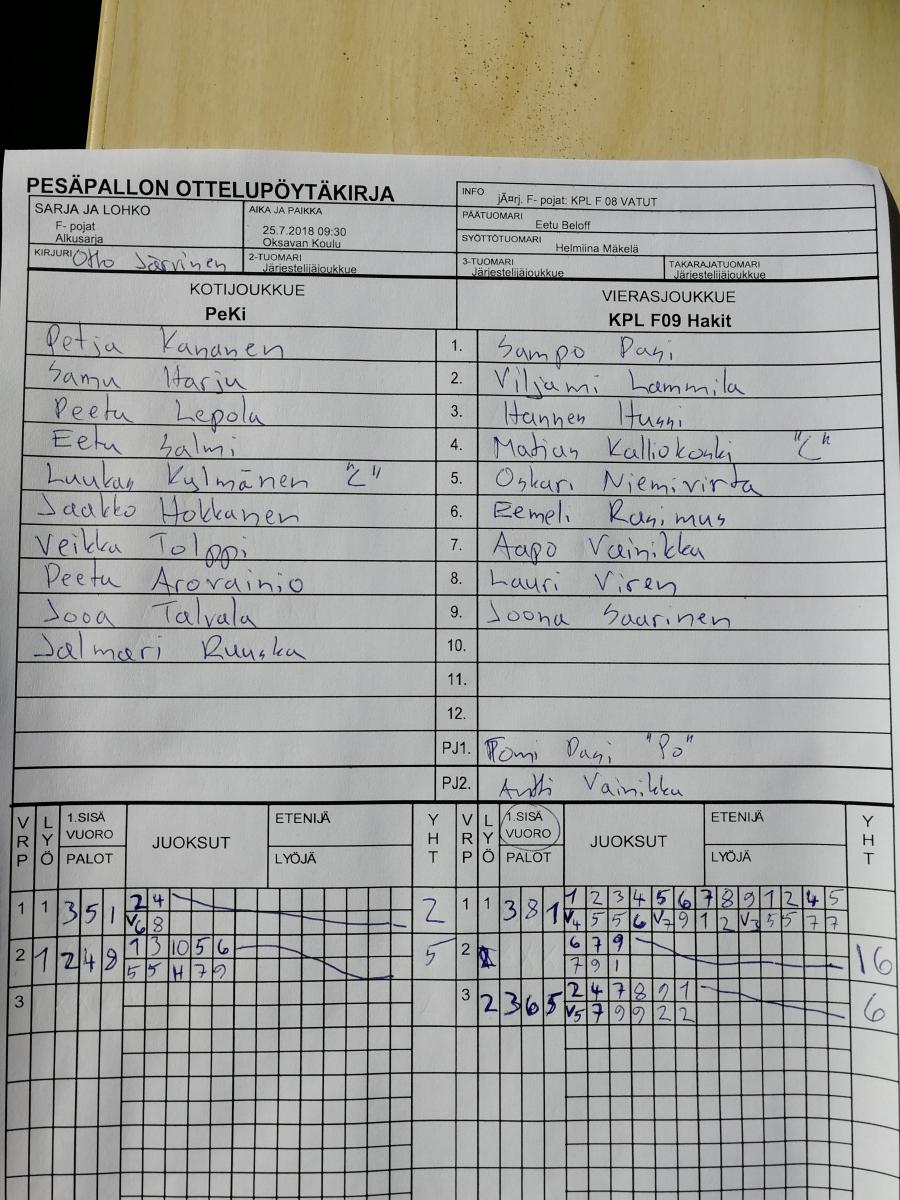 PESÄPALLON OTTELUPÖYTÄKIRJA
INFO jÃ¤rj. F- pojat: KPL F 08 VATUT
SARJA JA LOHKO
F- pojat
Alkusarja
AIKA JA PAIKKA
25.7.2018 09:30
Oksavan Koulu
PÄÄTUOMARI Eetu Beloff
SYÖTTÖTUOMARI Helmiina Mäkelä
KIRJURI Otto Järvinen
2-TUOMARI
Järjestelijäjoukkue
3-TUOMARI
Järjestelijäjoukkue
TAKARAJATUOMARI
Järjestelijäjoukkue
KOTIJOUKKUE VIERASJOUKKUE
PeKi KPL F09 Hakit
Petja Kananen 1. Sampo Pasi
Samu Harju 2. Viljami Lammila
Peetu Lepola 3. Hannen Hussi
Eetu Salmi 4. Matias Kalliokoski "C"
Luukas Kylmänen "C" 5. Oskari Niemivirta
Jaakko Hokkanen 6. Eemeli Rasimus
Veikka Tolppi 7. Aapo Vainikka
Peetu Arovainio 8. Lauri Viren
Jooa Talvala 9. Joona Saarinen
Jalmari Ruuska 10.
11.
12.
PJ1. Tomi Pasi "Po"
PJ2. Antti Vainikka
VRP LYÖ 1.SISÄ VUORO PALOT JUOKSUT ETENIJÄ LYÖJÄ YHT VRP LYÖ 1.SISÄ VUORO PALOT JUOKSUT ETENIJÄ LYÖJÄ YHT
1 1 3 5 1 2 4 2 1 1 3 8 1 1 2 3 4 5 6 7 8 9 1 2 4 5
V6 8 V4 5 5 6 V7 9 1 2 V3 5 5 7 7
2 1 2 4 8 1 3 10 5 6 5 2 6 7 9 16
5 5 H 7 9 7 9 1
3 3 2 3 6 5 2 4 7 8 9 1 6
V5 7 9 9 2 2